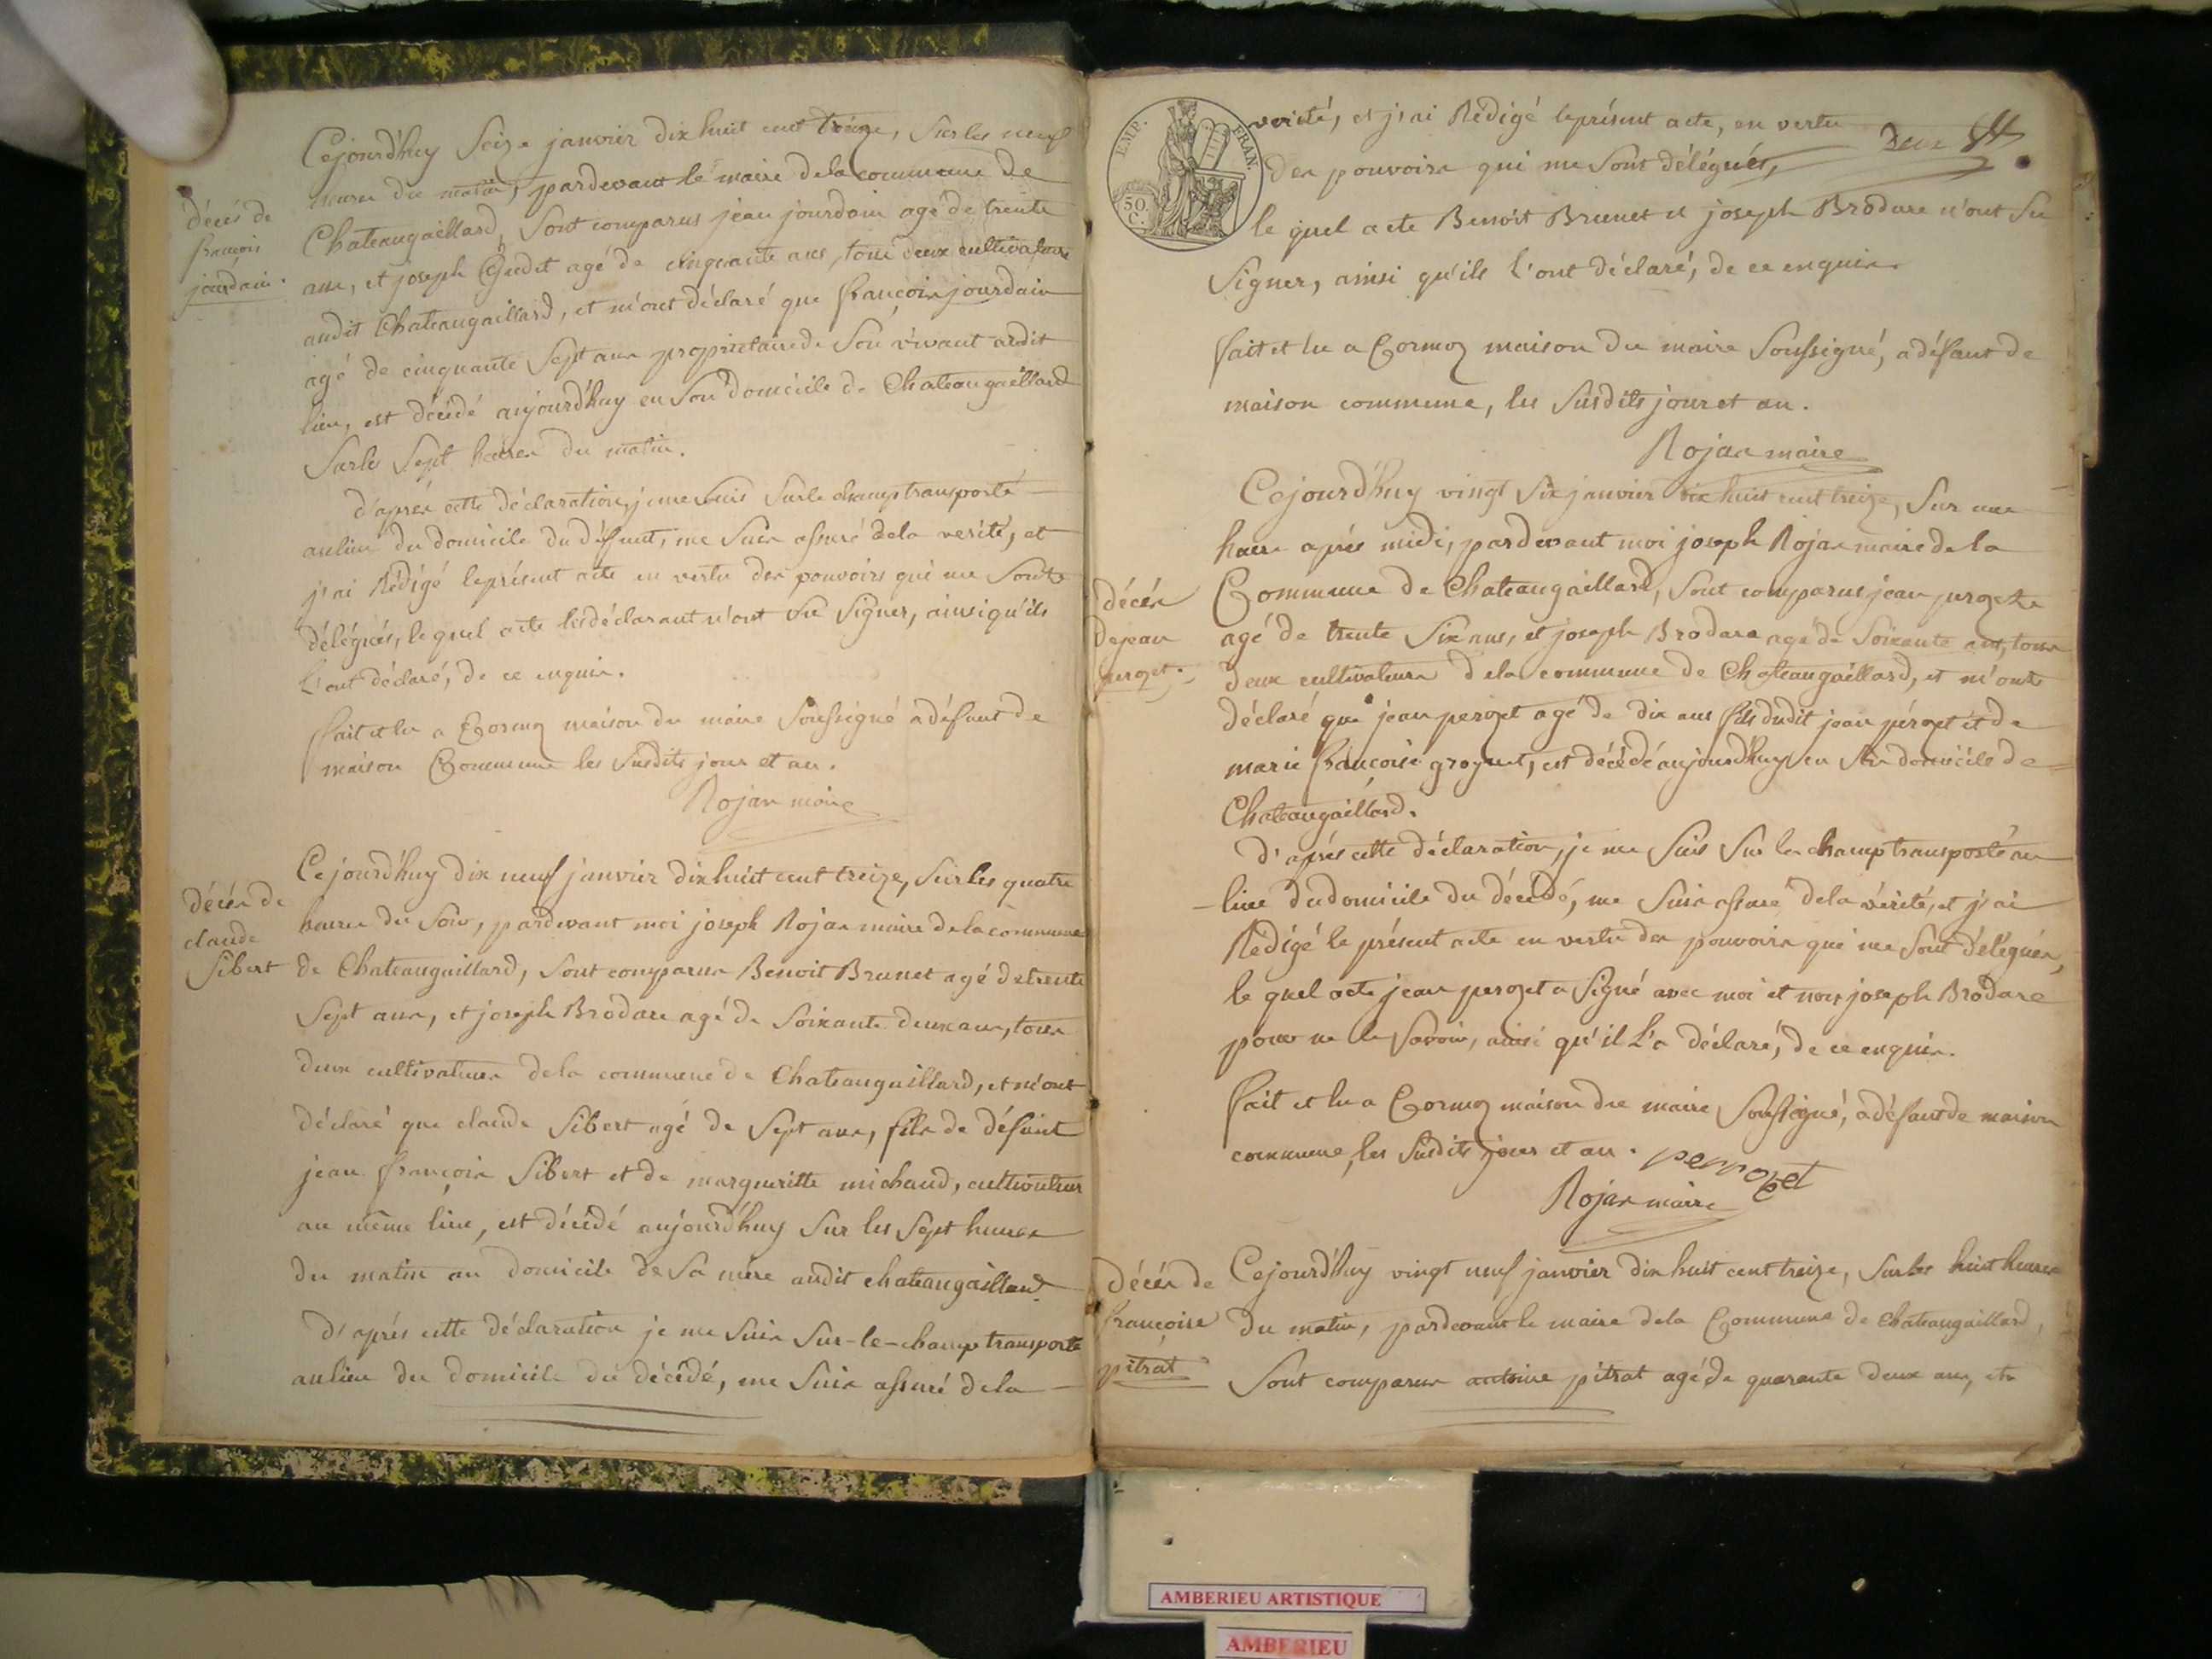 décès de
françois
jourdain.
Cejourd'huy Seize janvier dix huit cent treize, Sur les neuf
heures du matin, pardevant le maire dela commune de
Chateaugaillard, Sont comparus jean jourdain agé de trente
ans, et joseph agé de cinquante ans, tous deux cultivateurs
audit Chateaugaillard, et m'ont déclaré que françois jourdain
agé de cinquante Sept ans proprietaire de Son vivant audit
lieu, est décédé aujourd'huy en Son domicile de Chateaugaillard
Sur les Sept heures du matin.
d'après cette déclaration, je me suis Sur le champ transporté
au lieu du domicile du défunt, me Suis assuré dela verité, et
j'ai Rédigé le présent acte en vertu des pouvoirs qui me Sont
délégués, le quel acte les déclarant n'ont Su Signer, ainsi qu'ils
l'ont déclaré, de ce enquis.
fait et lu a Cormoz maison du maire Soussigné a défaut de
maison Commune les Susdits jour et an.
Rojas maire
décès de
claude
Sibert
Cejourd'huy dix neuf janvier dix huit cent treize, Sur les quatre
heures du Soir, pardevant moi joseph Rojas maire dela commune
de Chateaugaillard, Sont comparus Benoit Brunet agé de trente
Sept ans, et joseph Brodare agé de Soixante deux ans, tous
deux cultivateurs dela commune de Chateaugaillard, et m'ont
déclaré que claude Sibert agé de Sept ans, fils de défunt
jean françois Sibert et de margueritte michaud, cultivateur
au même lieu, est décédé aujourd'huy Sur les Sept heures
du matin au domicile de Sa mère audit chateaugaillard.
d'après cette déclaration je me Suis Sur-le-champ transporté
au lieu du domicile du décédé, me Suis assuré dela
EMP. FRAN.
50
C.
verité, et j'ai Rédigé le présent acte, en vertu
Deux
des pouvoirs qui me Sont délégués,
le quel acte Benoit Brunet et joseph Brodare n'ont Su
Signer, ainsi qu'ils l'ont déclaré, de ce enquis.
fait et lu a Cormoz maison du maire Soussigné, a défaut de
maison commune, les Susdits jour et an.
Rojas maire
Cejourd'huy vingt Six janvier dix huit cent treize, Sur une
heure après midi, pardevant moi joseph Rojas maire de la
décès
de jean
perozet.
Commune de Chateaugaillard, Sont comparus jean perozet
agé de trente Six ans, et joseph Brodare agé de Soixante ans, tous
deux cultivateurs dela commune de Chateaugaillard, et m'ont
déclaré que jean perozet agé de dix ans fils dudit jean pérozet et de
marie françoise grognet, est décédé aujourd'huy en Son domicile de
Chateaugaillard.
d'après cette déclaration, je me Suis Sur le champ transporté au
lieu du domicile du décédé, me Suis assuré dela vérité, et j'ai
Rédigé le présent acte en vertu des pouvoirs qui me Sont délégués,
le quel acte jean perozet a Signé avec moi et non joseph Brodare
pour ne le Savoir, ainsi qu'il l'a déclaré, de ce enquis.
fait et lu a Cormoz maison du maire Soussigné, a défaut de maison
commune, les Susdits jour et an. perrozet
Rojas maire
décès de
françoise
pitrat
Cejourd'huy vingt neuf janvier dix huit cent treize, Sur les huit heures
du matin, pardevant le maire dela Commune de Chateaugaillard,
Sont comparus antoine pitrat agé de quarante deux ans, et
AMBERIEU ARTISTIQUE
AMBERIEU